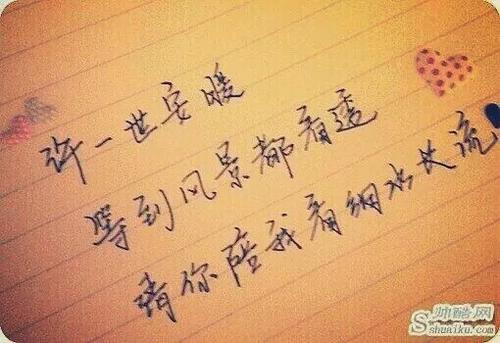 许一世安暖
等到风景都看透
请你陪我看细水长流
帅酷网
shuaiku.com